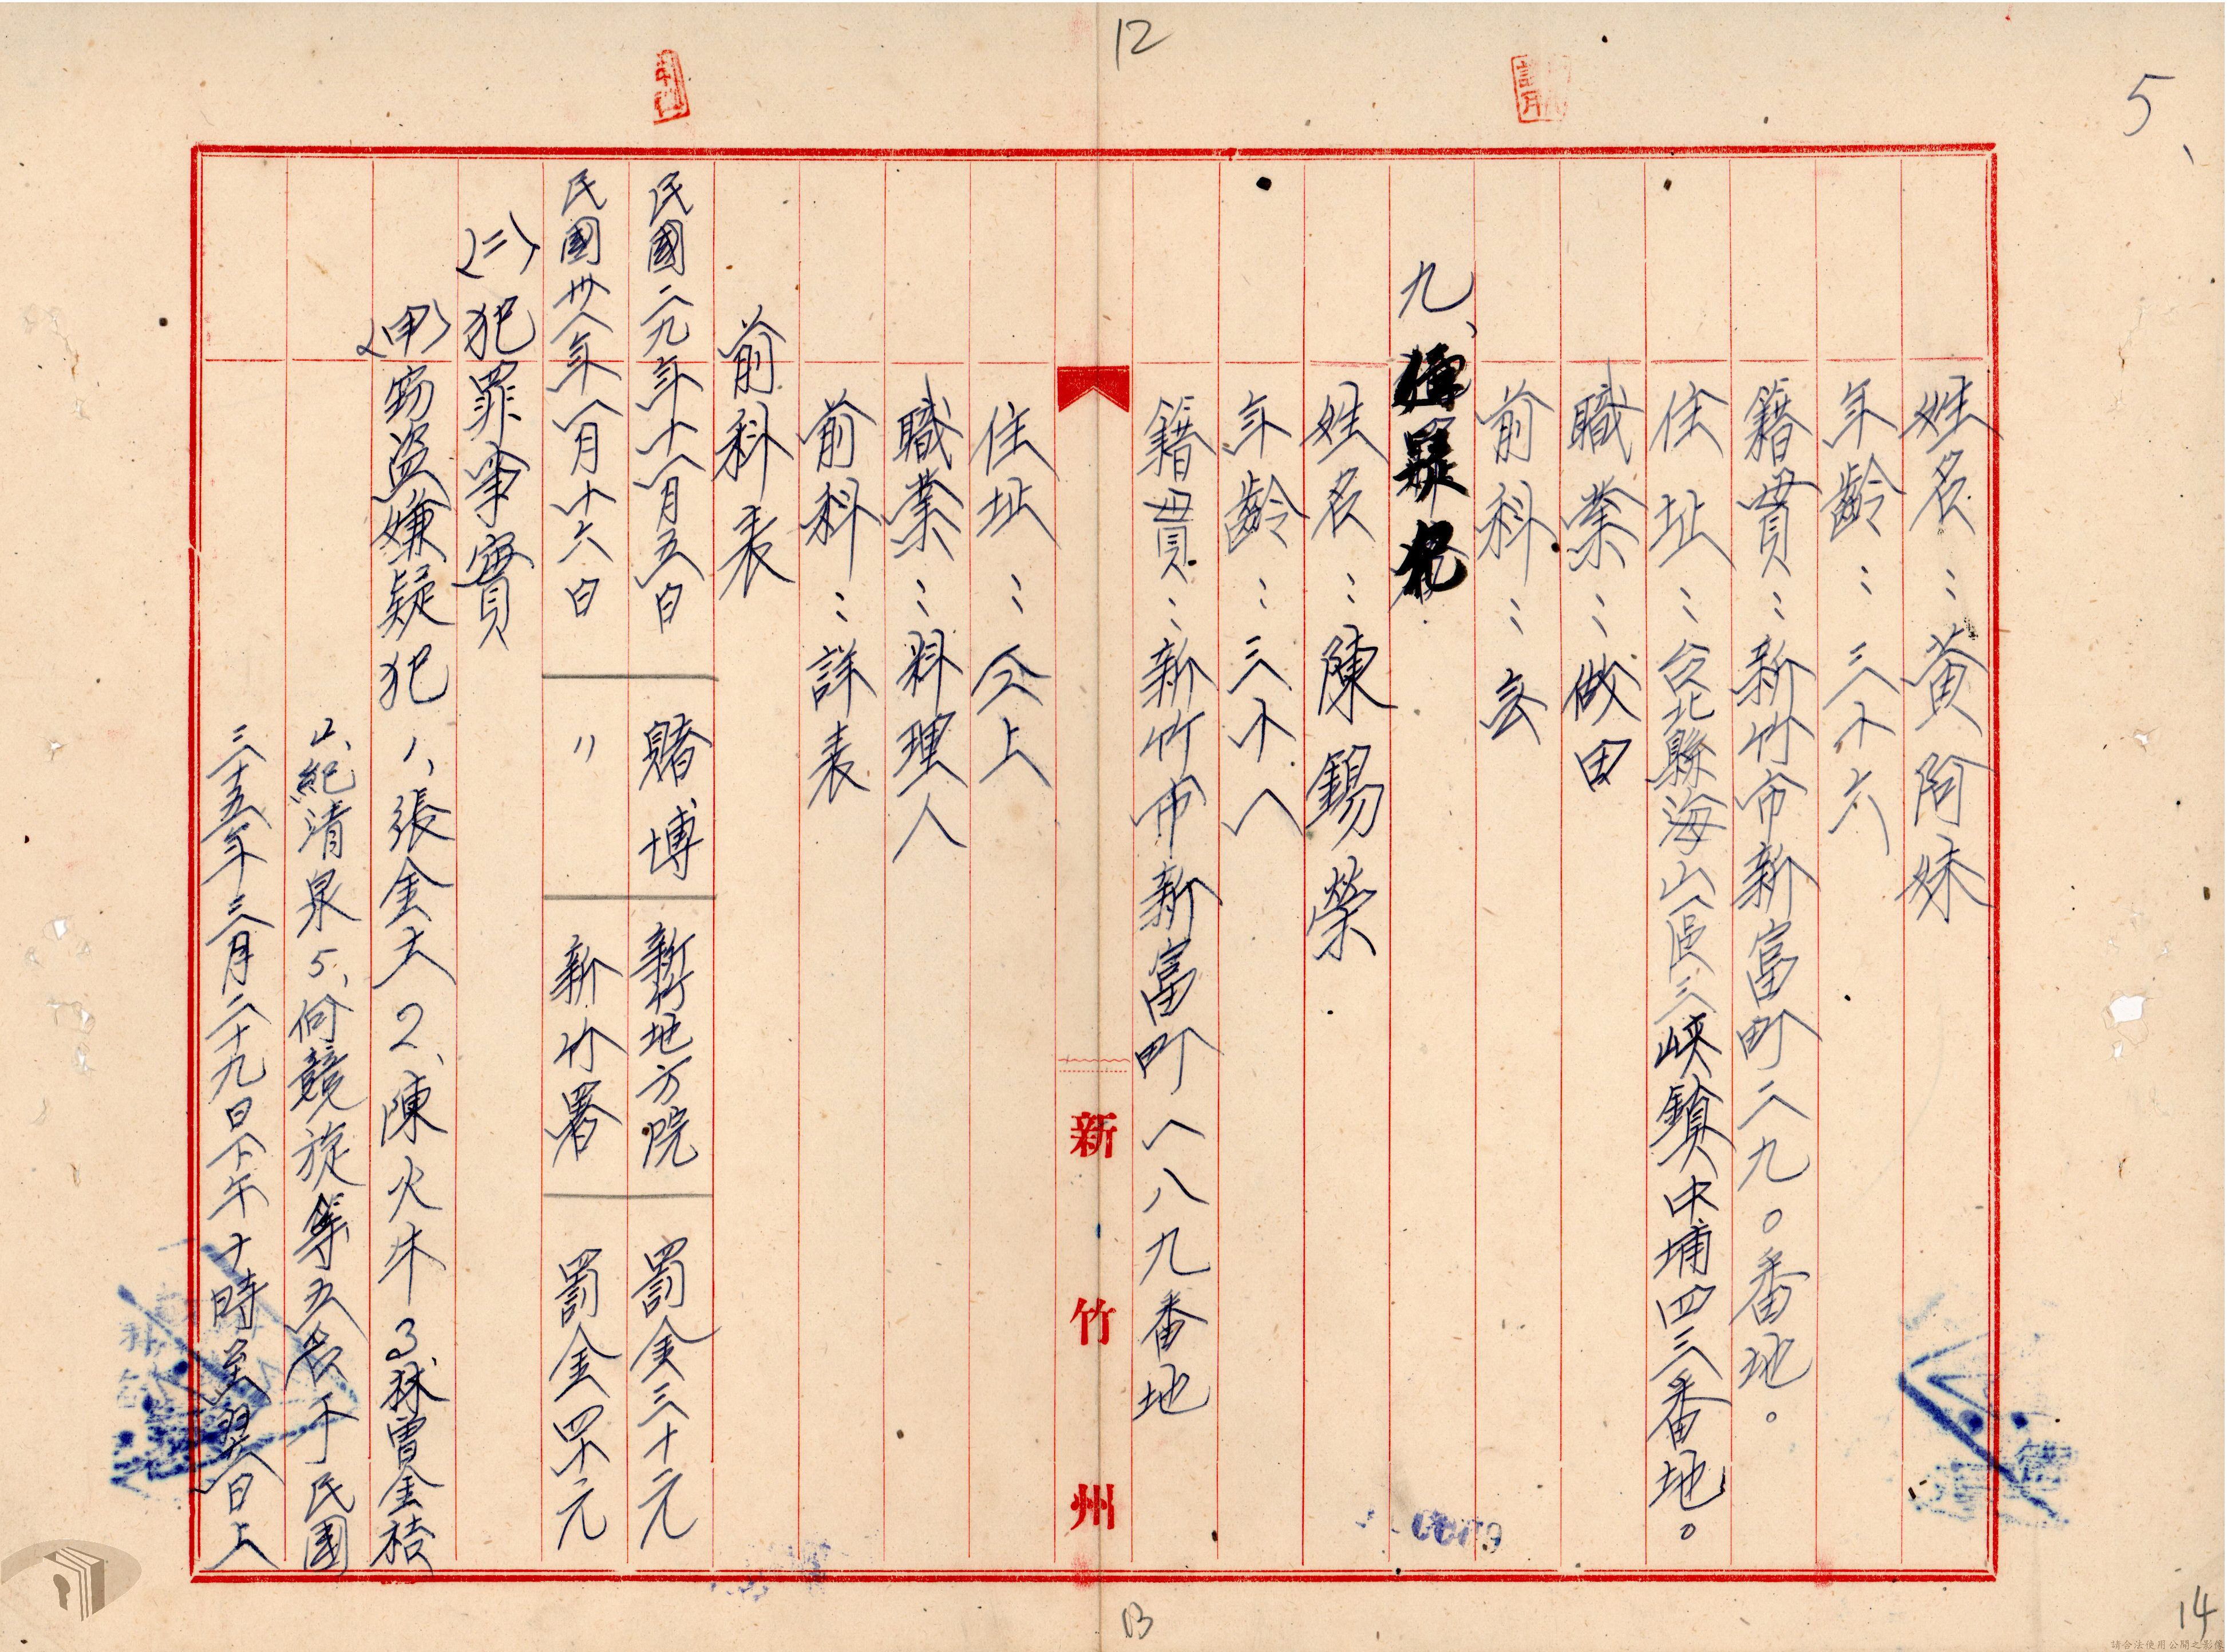 12
5、
姓名：黃阿妹
年齡：三十六
籍貫：新竹市新富町二九〇番地。
住址：台北縣海山區三峽鎮中埔四三番地。
職業：做田
前科：玄
九、
姓名：陳錫榮
年齡：三十八
籍貫：新竹市新富町一八九番地
新竹州
住址：仝上
職業：料理人
前科：詳表
前科表
民國二九年十一月五日 賭博 新竹地方院 罰金三十元
民國卅八年八月十六日 〃 新竹署 罰金四十元
(二)犯罪事實
(甲)竊盜嫌疑犯 1、張金大 2、陳火牛 3林曾金桔
4、紀清泉 5、何競旋等五名于民國
三十五年三月二十九日下午十時至翌日上
13
14
請合法使用公開之影像